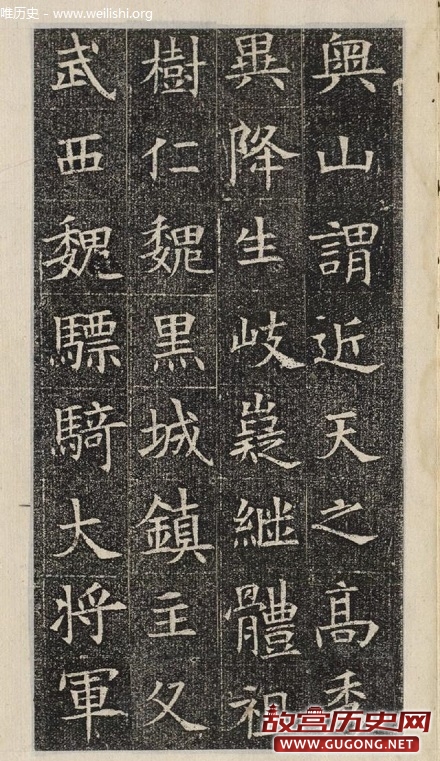 奧山謂近天之高秀
異降生岐嶷繼體祖
樹仁魏黑城鎮主父
武西魏驃騎大将軍
唯历史 - www.weilishi.org
故宫历史网
www.GUGONG.net